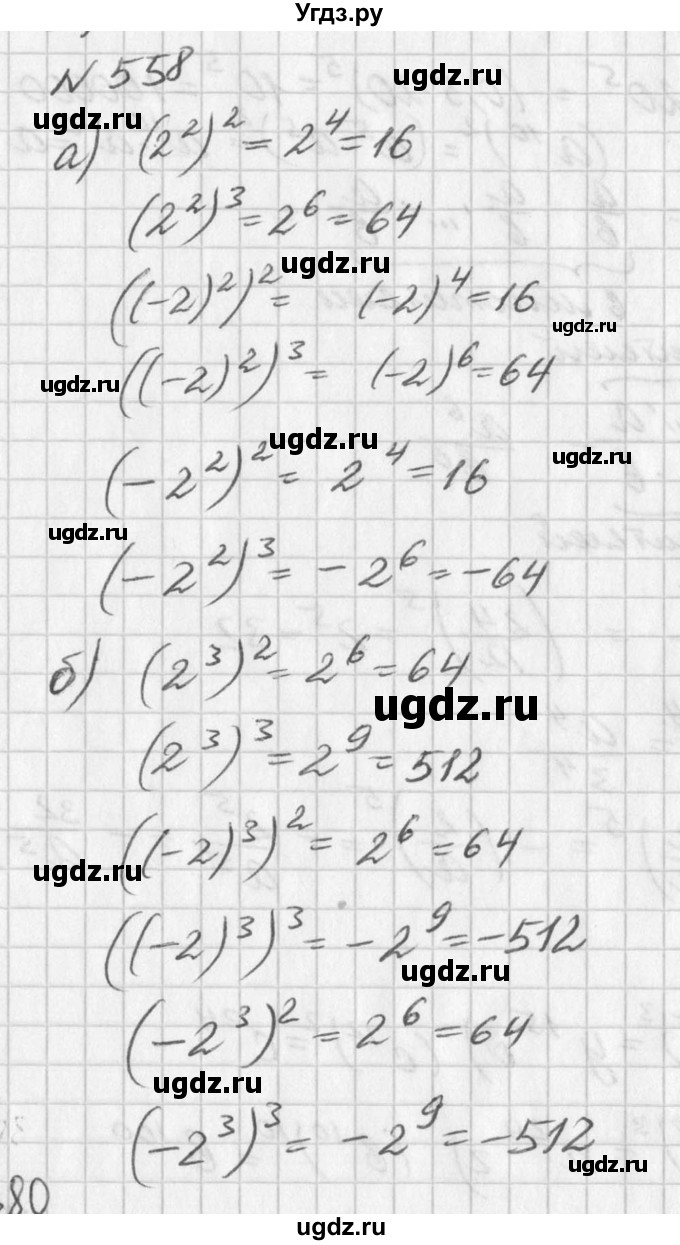 Угдз.ру
№ 558
ugdz.ru
ugdz.ru
а) (2²)² = 2⁴ = 16
(2²)³ = 2⁶ = 64
ugdz.ru
((-2)²)² = (-2)⁴ = 16
ugdz.ru
((-2)²)³ = (-2)⁶ = 64
ugdz.ru
ugdz.ru
ugdz.ru
(-2²)² = 2⁴ = 16
ugdz.ru
(-2²)³ = -2⁶ = -64
б) (2³)² = 2⁶ = 64
ugdz.ru
(2³)³ = 2⁹ = 512
((-2)³)² = 2⁶ = 64
ugdz.ru
((-2)³)³ = -2⁹ = -512
ugdz.ru
(-2³)² = 2⁶ = 64
ugdz.ru
(-2³)³ = -2⁹ = -512
ugdz.ru
80
ugdz.ru